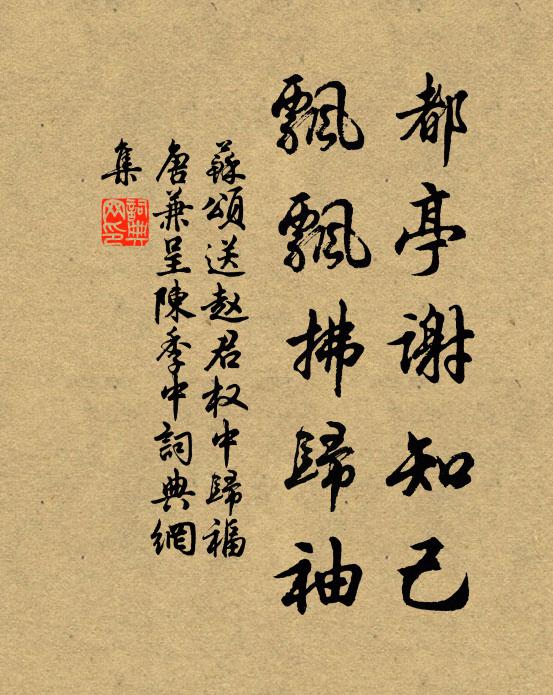 都亭谢知己
飘飘拂歸袖
蘇颂送赵君权中歸福
唐兼呈陳季中詞典網
集
詞典
网印